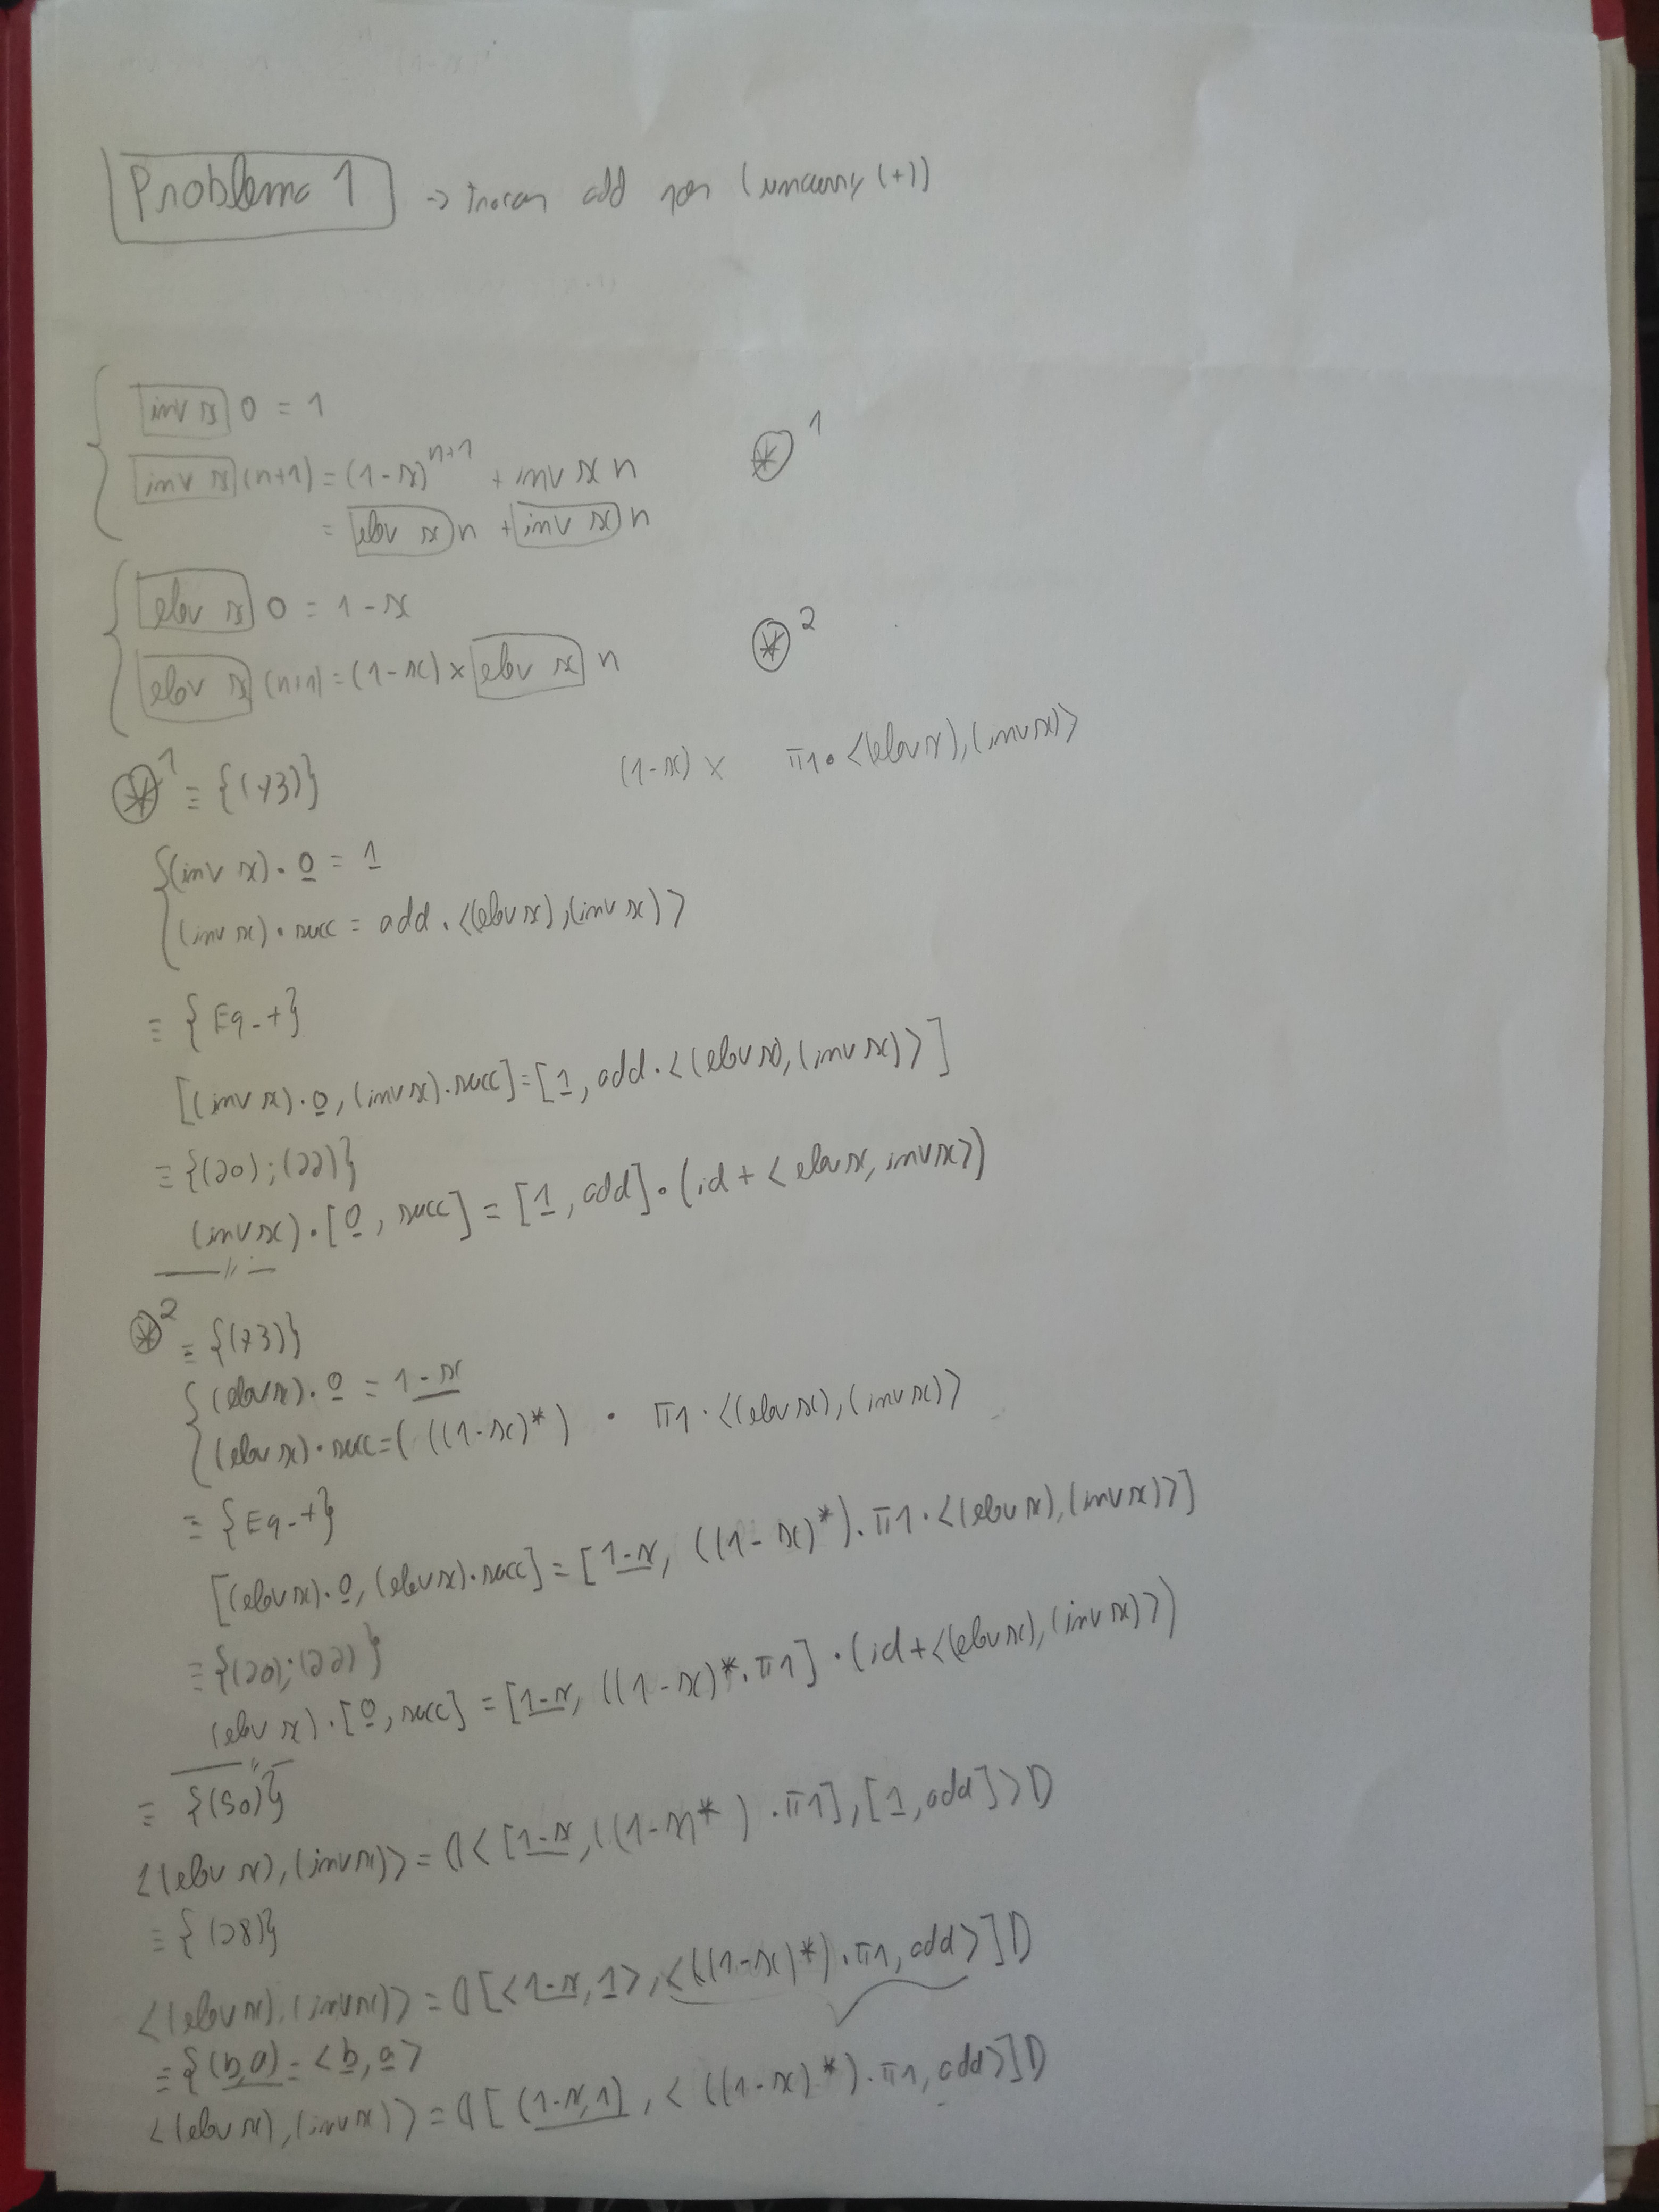 Problema 1 → trocar add por (uncurry (+))
inv x 0 = 1
inv x (n+1) = (1-x)^{n+1} + inv x n
= elev x n + inv x n
⊛1
elev x 0 = 1-x
elev x (n+1) = (1-x) × elev x n
⊛2
(1-x) × π1 · <(elev x), (inv x)>
⊛1 ≡ {(73)}
{(inv x) · 0 = 1
(inv x) · succ = add · <(elev x), (inv x)>
≡ {Eq-+}
[(inv x) · 0, (inv x) · succ] = [1, add · <(elev x), (inv x)>]
≡ {(20); (22)}
(inv x) · [0, succ] = [1, add] · (id + <elev x, inv x>)
—//—
⊛2 ≡ {(73)}
{(elev x) · 0 = 1-x
(elev x) · succ = ( ((1-x)*) · π1 · <(elev x), (inv x)>
≡ {Eq-+}
[(elev x) · 0, (elev x) · succ] = [1-x, ((1-x)*) · π1 · <(elev x), (inv x)>]
≡ {(20); (22)}
(elev x) · [0, succ] = [1-x, ((1-x)* · π1] · (id + <(elev x), (inv x)>)
—//—
≡ {(50)}
<(elev x), (inv x)> = ⦇<[1-x, ((1-x)*) · π1], [1, add]>⦈
≡ {(28)}
<(elev x), (inv x)> = ⦇[<1-x, 1>, <((1-x)*) · π1, add>]⦈
≡ {(b,a) = <b, a>
<(elev x), (inv x)> = ⦇[(1-x, 1), <((1-x)*) · π1, add>]⦈